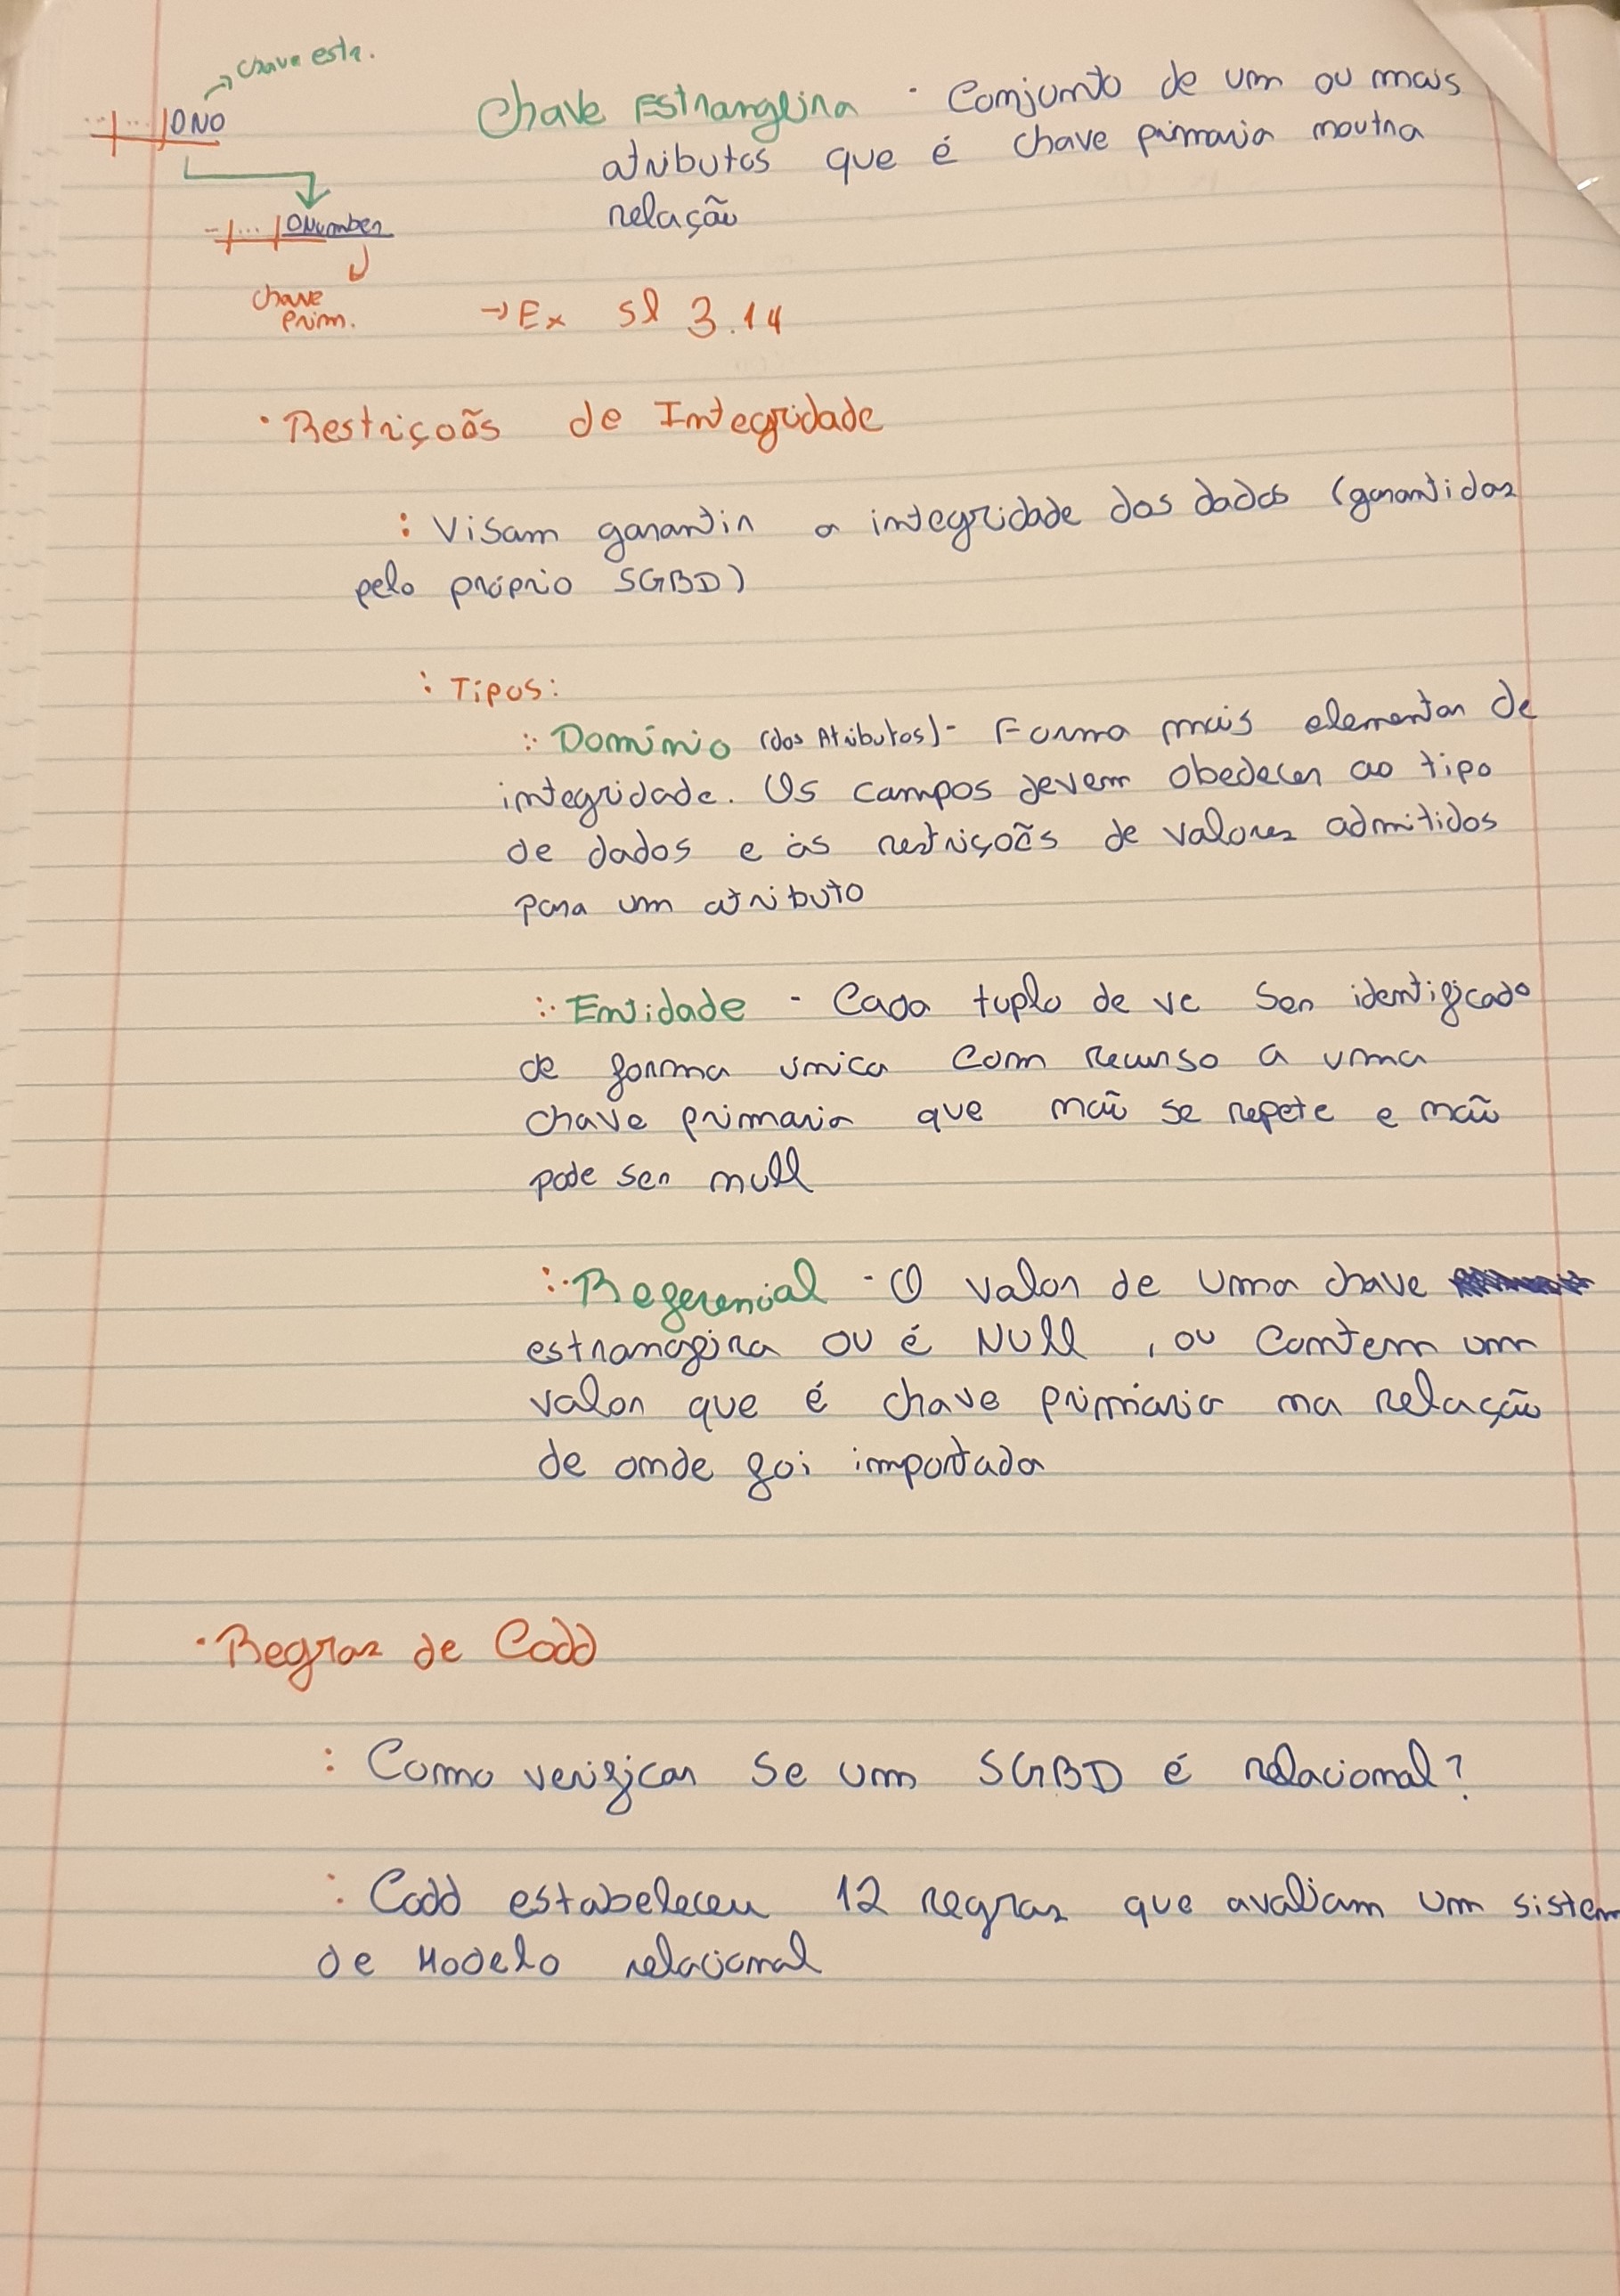 → Chave estr.
...|...|DNO
Chave Estrangeira - Conjunto de um ou mais
atributos que é chave primaria noutra
relação
-|...|DNumber
Chave
Prim.
→ Ex sl 3.14
• Restriçoẽs de Integridade
: Visam garantir a integridade dos dados (garantidas
pelo próprio SGBD)
: Tipos:
:· Domínio (dos Atributos) - Forma mais elementar de
integridade. Os campos devem obedecer ao tipo
de dados e às restriçoẽs de valores admitidos
para um atributo
:· Entidade - Cada tuplo deve ser identificado
de forma única com recurso a uma
chave primaria que não se repete e não
pode ser null
:· Referencial - O valor de uma chave
estrangeira ou é NUll, ou contem um
valor que é chave primária na relação
de onde foi importada
• Regras de Codd
: Como verificar se um SGBD é relacional?
: Codd estabeleceu 12 regras que avaliam um sistem
de Modelo relacional